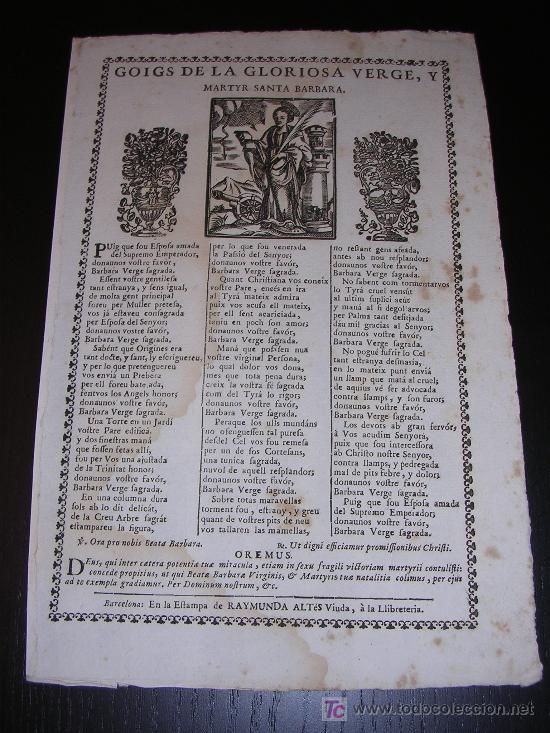 GOIGS DE LA GLORIOSA VERGE, Y
MARTYR SANTA BARBARA.
PUig que sou Esposa amada
del Supremo Emperador,
donaunos vostre favór,
Barbara Verge sagrada.
Essent vostre gentilesa
tant estranya, y sens igual,
de molta gent principal
foreu per Muller pretesa,
vos já estaveu consagrada
per Esposa del Senyor;
donaunos vostre favór,
Barbara Verge sagrada.
Sabént que Origines era
tant docte, y sant, li escriguereu,
y per lo que pretenguereu
vos enviá un Prebera
per ell foreu batejada,
sentvos los Angels honor;
donaunos vostre favór,
Barbara Verge sagrada.
Una Torre en un Jardí
vostre Pare edificá,
y dos finestras maná
que fossen fetas allí,
fou per Vos una ajustada
de la Trinitat honor;
donaunos vostre favór,
Barbara Verge sagrada.
En una columna dura
sols ab lo dit delicát,
de la Creu Arbre sagrát
estampareu la figura,
per lo que sou venerada
la Passió del Senyor;
donaunos vostre favór,
Barbara Verge sagrada.
Quant Christiana vos coneix
vostre Pare, encés en ira
al Tyrá mateix admira
puix vos acusa ell mateix,
per ell sent acariciada,
teniu en poch son amor;
donaunos vostre favór,
Barbara Verge sagrada.
Maná que posassen nua
vostre virginal Persona,
lo qual dolor vos dona,
mes que tota pena dura;
creix la vostra fé sagrada
com del Tyrá lo rigor;
donaunos vostre favór,
Barbara Verge sagrada.
Peraque los ulls mundáns
no ofenguessen tal puresa
desdel Cel vos fou remesa
per un de sos Cortesans,
una tunica sagrada,
nuvol de aquell resplandor;
donaunos vostre favór,
Barbara Verge sagrada.
Sobre totas maravellas
torment fou, estrany, y greu
quant de vostres pits de neu
vos tallaren las mamellas,
no restant gens afeada,
antes ab nou resplandor;
donaunos vostre favór,
Barbara Verge sagrada.
No sabent com tormentarvos
lo Tyrá cruel vensút
al ultim suplici
y maná al fi degol'arvos;
per Palma tant desitjada
dáu mil gracias al Senyor;
donaunos vostre favór,
Barbara Verge sagrada.
No pogué sufrir lo Cel
tant estranya desmasia,
en lo mateix punt enviá
un llamp que matá al cruel;
de aquius vé ser advocada
contra llamps, y son furor;
donaunos vostre favór,
Barbara Verge sagrada.
Los devots ab gran fervór
á Vos acudim Senyora,
puix que sou intercessora
ab Christo nostre Senyor,
contra llamps, y pedregada
mal de pits febre, y dolor;
donaunos vostre favór,
Barbara Verge sagrada.
Puig que sou Esposa amada
del Supremo Emperador;
donaunos vostre favór,
Barbara Verge sagrada.
℣. Ora pro nobis Beata Barbara. ℟. Ut digni efficiamur promissionibus Christi.
OREMUS.
DEus, qui inter cætera potentiæ tuæ miracula, etiam in sexu fragili victoriam martyrii contulisti:
concede propitius, ut qui Beatæ Barbaræ Virginis, & Martyris tuæ natalitia colimus, per ejus
ad te exempla gradiamur. Per Dominum nostrum, &c.
Barcelona: En la Estampa de RAYMUNDA ALTÉS Viuda, à la Llibreteria.
TC www.todocoleccion.net